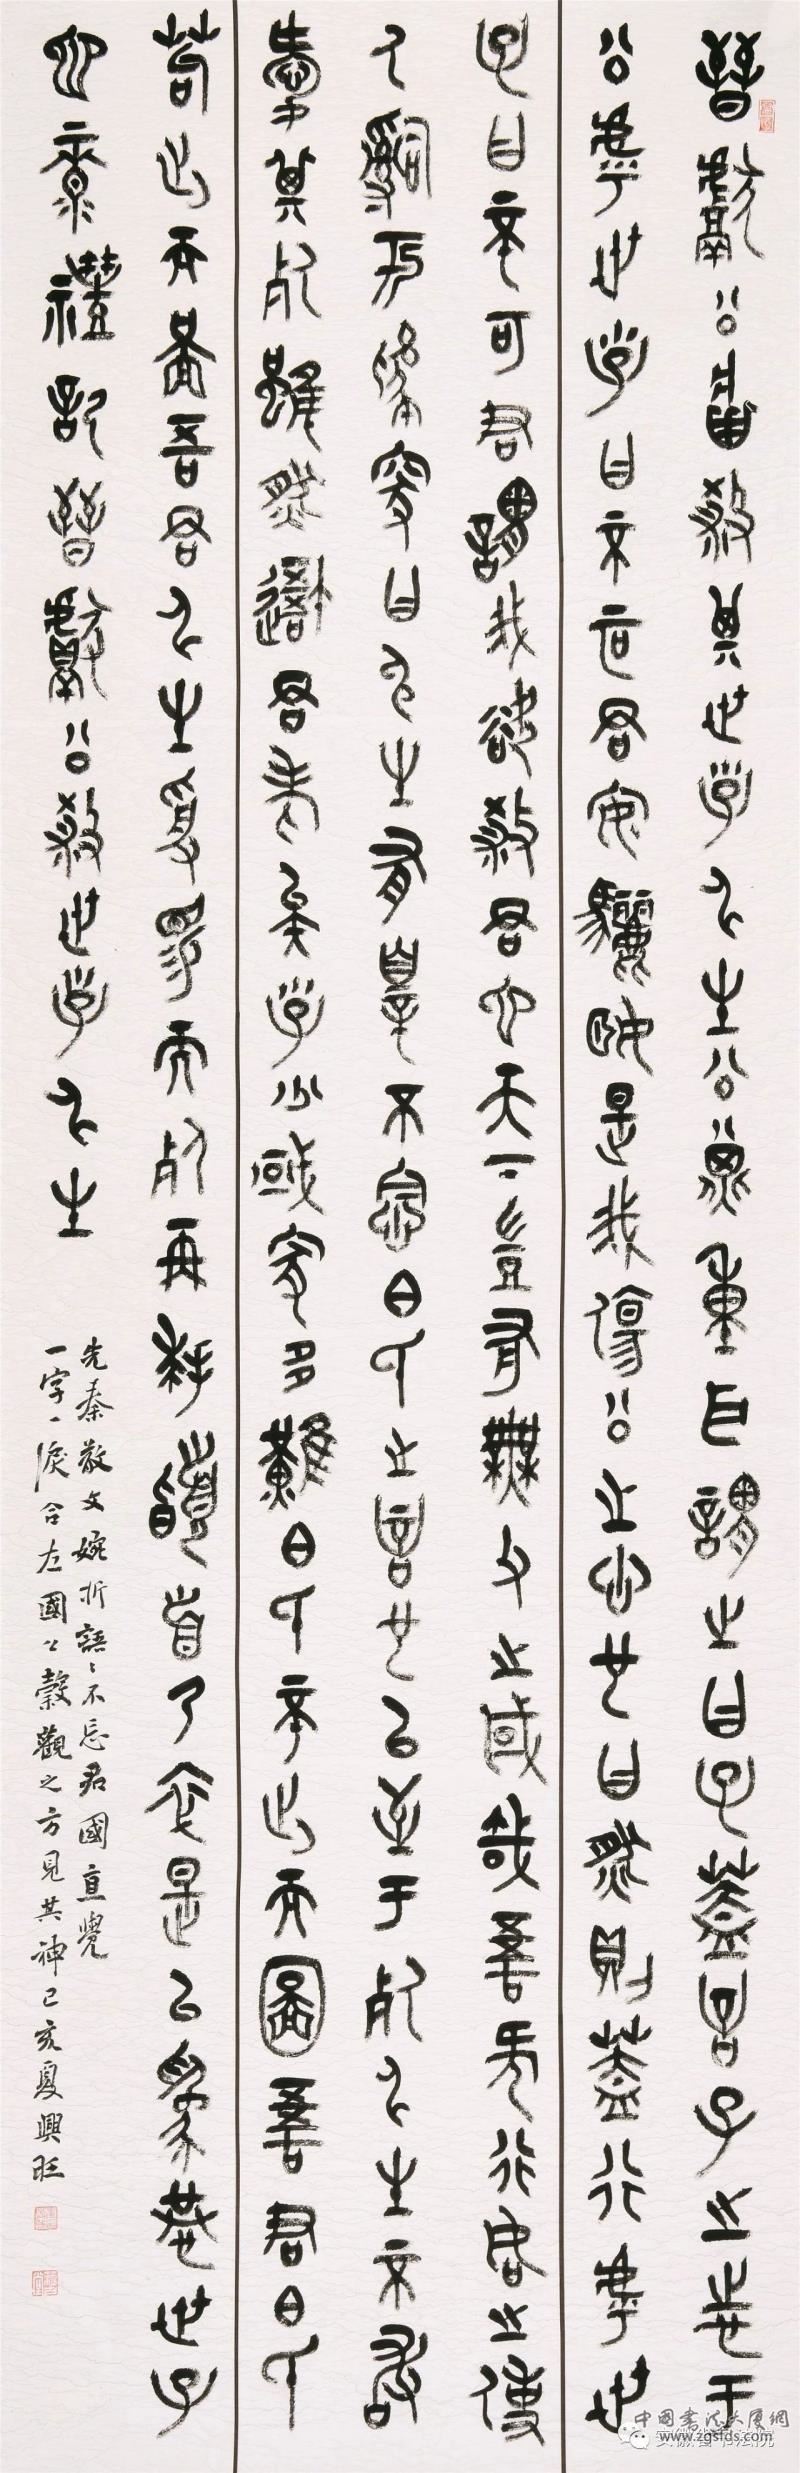 晉獻公將殺其世子申生公子重耳謂之曰子蓋言子之志于
公乎世子曰不可君安驪姬是我傷公之心也曰然則蓋行乎世
子曰不可君謂我欲弒君也天下豈有無父之國哉吾何行如之使
人辭於狐突曰申生有罪不念伯氏之言也以至于死申生不敢
愛其死雖然吾君老矣子少國家多難伯氏不出而圖吾君伯氏
苟出而圖吾君申生受賜而死再拜稽首乃卒是以為恭世子
也录禮記晉獻公殺世子申生
先秦散文婉折語語不忘君國直覺
一字一淚合左國公穀觀之方見其神己亥夏興旺
中國書法大廈網
www.zgsfds.com
安徽省书法院